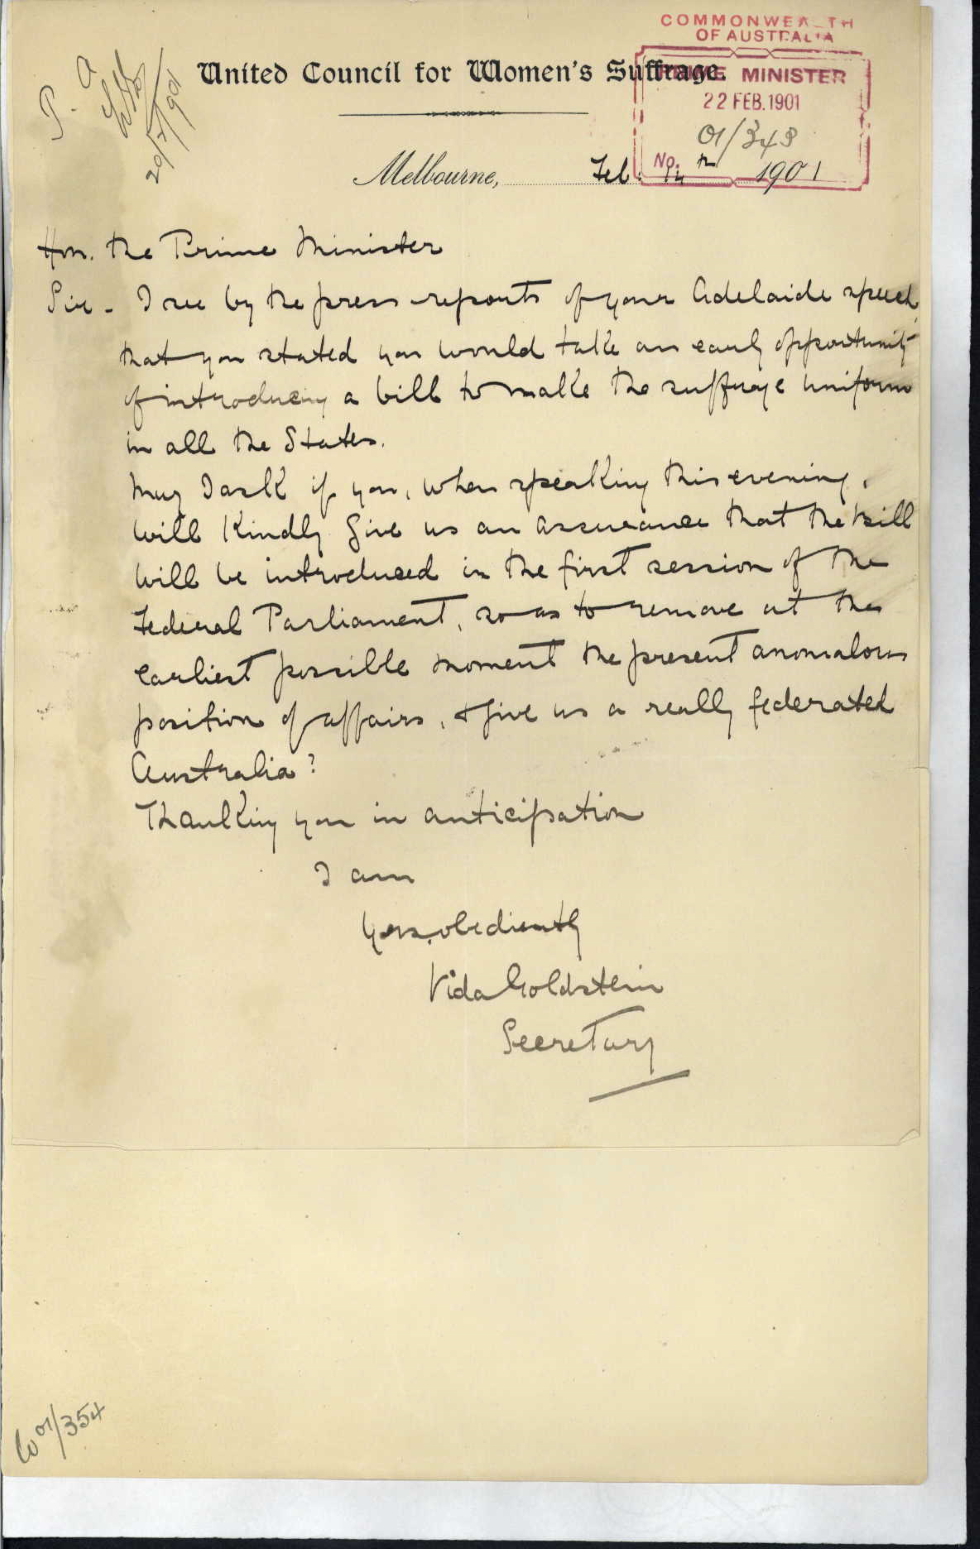 COMMONWEALTH
OF AUSTRALIA
PRIME MINISTER
22 FEB. 1901
No. 01/343
P. A
20/7/1901
United Council for Women's Suffrage.
Melbourne, Feb. 14th 1901
Hon. the Prime Minister
Sir - I see by the press reports of your Adelaide speech,
that you stated you would take an early opportunity
of introducing a bill to make the suffrage uniform
in all the States.
May I ask if you, when speaking this evening,
will kindly give us an assurance that the bill
will be introduced in the first session of the
Federal Parliament, so as to remove at the
earliest possible moment the present anomalous
position of affairs, & give us a really federated
Australia?
Thanking you in anticipation
I am
Yours obediently
Vida Goldstein
Secretary
01/354